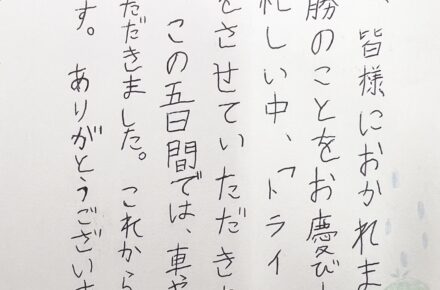 、皆様におかれま
勝のことをお慶び
礼しい中、「トライ
をさせていただき
この五日間では、車や
ただきました。これから
す。ありがとうございま